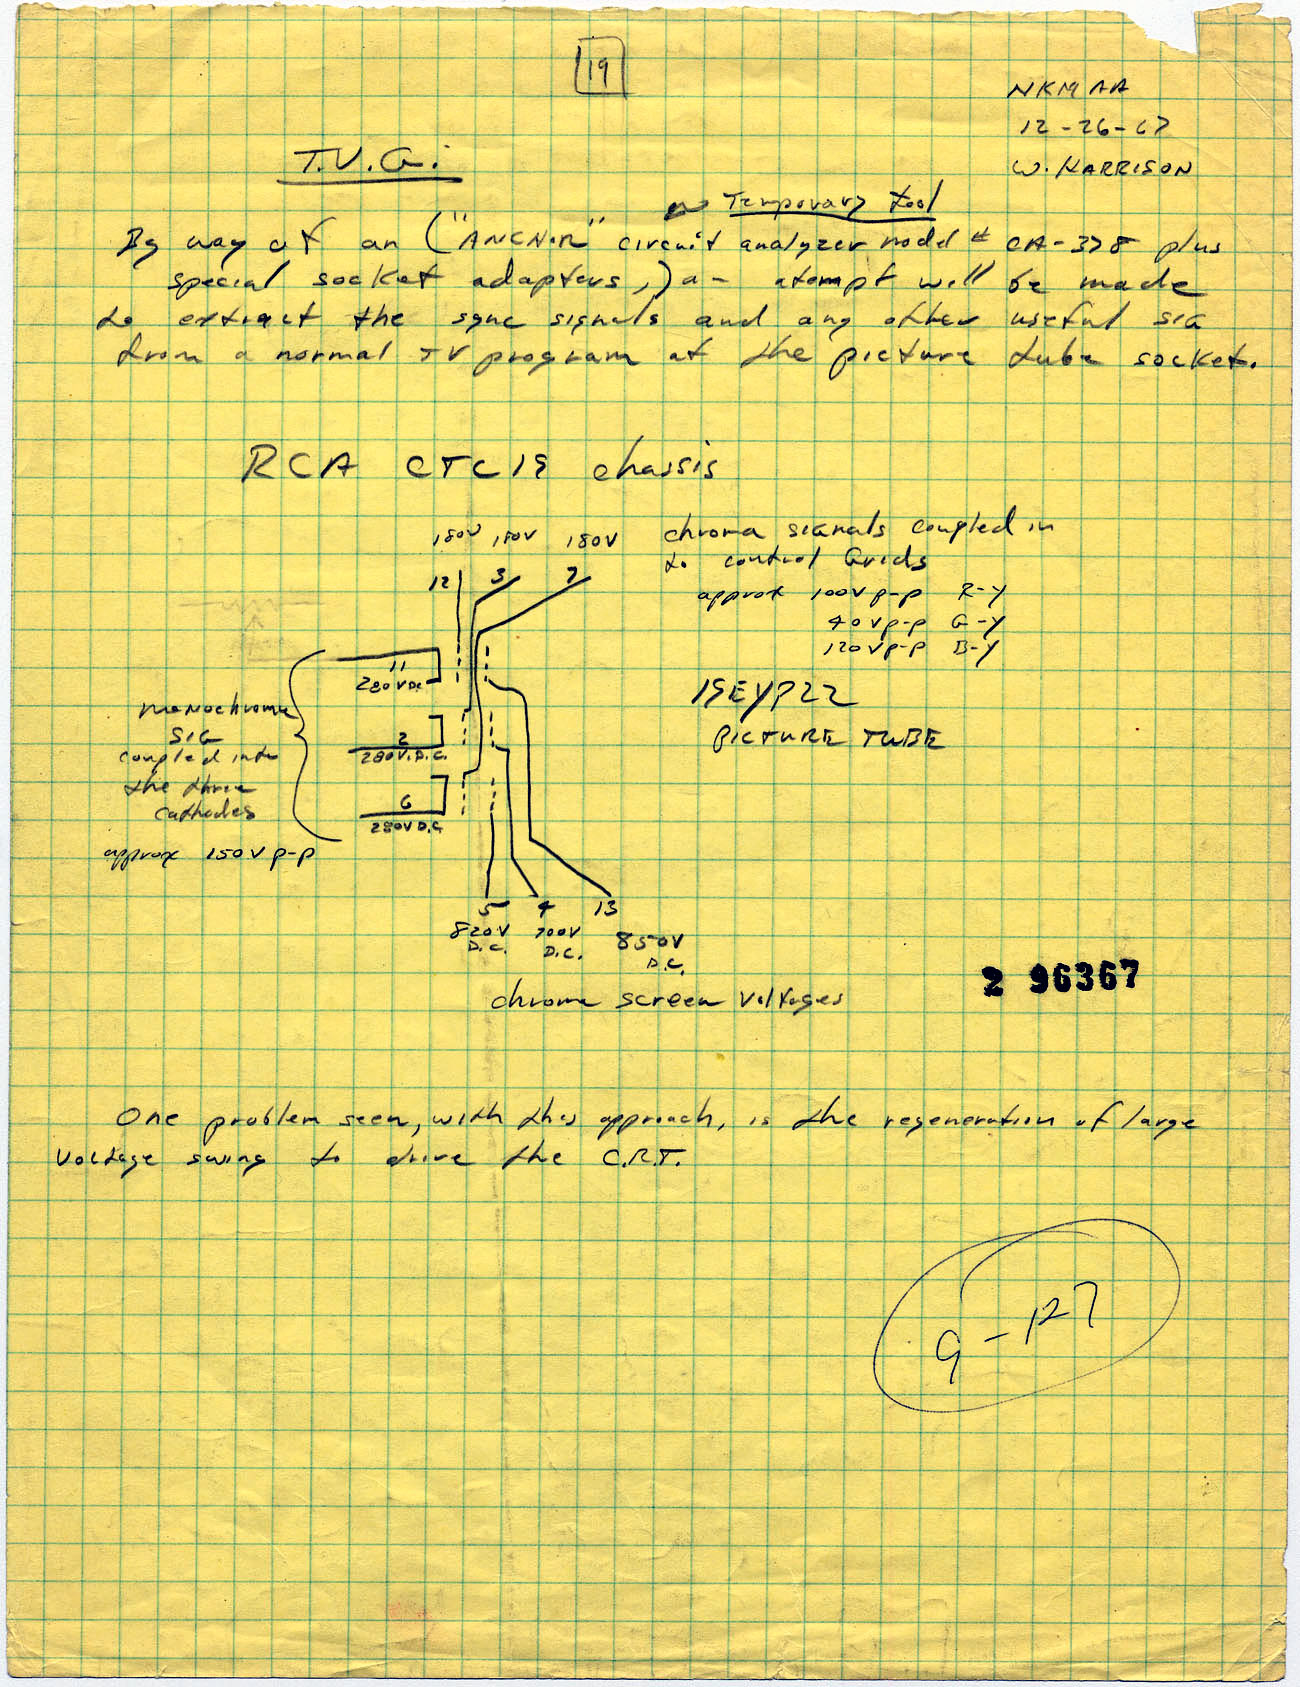 19
NKMAA
12-26-67
W. HARRISON
T.V.G.
Temporary tool
By way of an ("ANCHOR" circuit analyzer model # CA-378 plus
special socket adapters,) a- atempt will be made
to extract the sync signals and any other useful SIG
from a normal TV program at the picture tube socket.
RCA CTC19 chassis
180V 180V 180V
12 3 7
chroma signals coupled in
to control Grids
approx 100V p-p R-Y
40Vp-p G-Y
120Vp-p B-Y
11
280VDC
2
280V.D.C.
6
280VD.C
monochrome
SIG
coupled into
the three
cathodes
approx 150V p-p
19EYP22
PICTURE TUBE
5 4 13
820V 700V 850V
D.C. D.C. D.C.
chrome screen voltages
2 96367
One problem seen, with this approach, is the regeneration of large
voltage swing to drive the C.R.T.
9-127